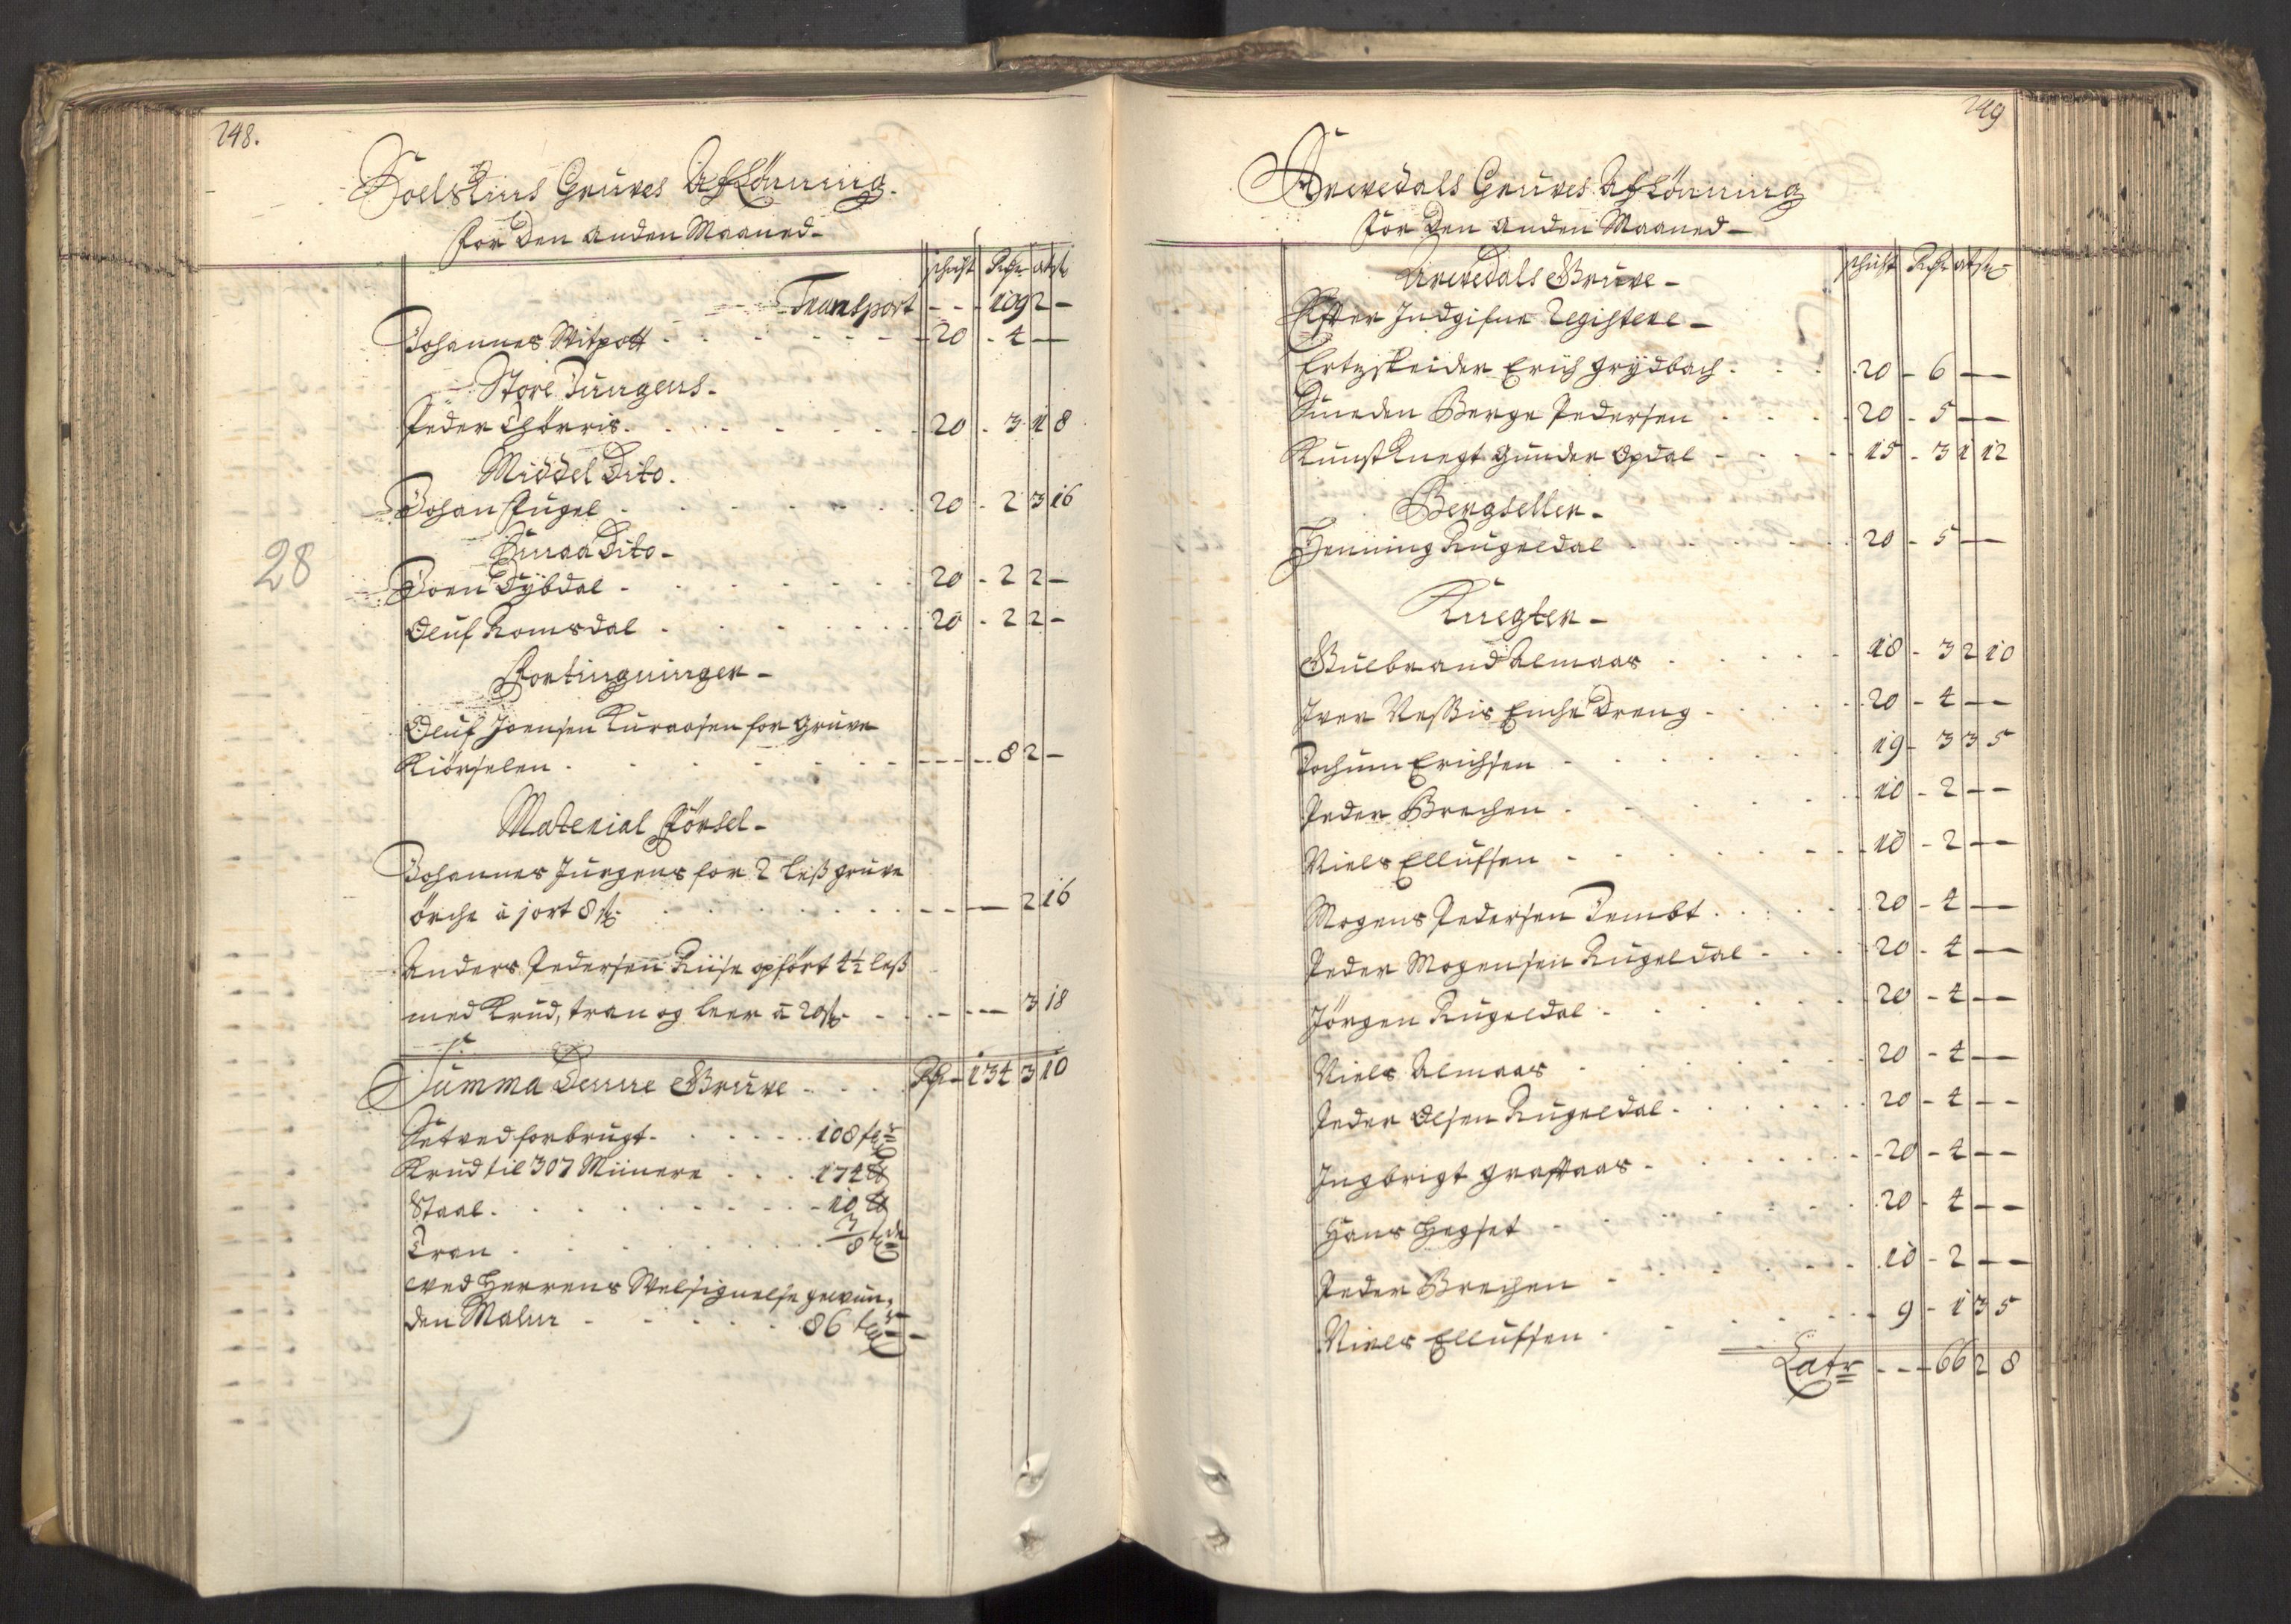 248.
Soelskins Gruves Aflönning.
for den anden Maaned-
schicht Rdr ort s
Transport - - - 109 2 -
Johannes Witpott - 20 - 4 -
Store Jungens.
Peder Thörris - 20 - 3 1 8
Middel Dito.
Johan Fugel - 20 - 2 3 16
Smaa Dito-
Joen Dÿbdal - 20 - 2 2 -
Oluf Romsdal - 20 - 2 2 -
Fortingninger-
Oluf Joensen Kuraasen for Gruve
Kiörselen - - - 8 2 -
Material Försel-
Johannes Jürgens for 2 leß gruve
örche à jort 8 s - - - 2 16
Anders Pedersen Riise opfört 4½ leß
med Krud, tran og leer à 20 s - - - 3 18
Summa Denne Gruve - Rdr 134 3 10
Setved forbrugt - 108 fr
Krud til 307 Miinere - 174 ℔
Staal - 10 ℔
Tran - 3/8 tde
ved Herrens Welsignelse gewun-
den Malm - 86 tr
28
249
Arvedals Gruves Aflönning
For den anden Maaned-
schicht Rdr ort s
Arvedals Gruve-
Efter Indgifne Registere-
Ertzskeider Erich Grÿdbach - 20 - 6 -
Smeden Berge Pedersen - 20 - 5 -
Kunst Knegt Gunder Opdal - 15 - 3 1 12
Bergseller-
Henning Rugeldal - 20 - 5 -
Knegter-
Gulbrand Aлmaas - 18 - 3 2 10
Iver Neßis Enche Dreng - 20 - 4 -
Jochum Erichsen - 19 - 3 3 5
Peder Brechen - 10 - 2 -
Niels Ellufsen - 10 - 2 -
Mogens Pedersen Tembt - 20 - 4 -
Peder Mogensen Rugeldal - 20 - 4 -
Jörgen Rugeldal - 20 - 4 -
Niels Almaas - 20 - 4 -
Peder Olsen Rugeldal - 20 - 4 -
Ingbrigt Graftaas - 20 - 4 -
Hans Hegset - 20 - 4 -
Peder Brechen - 10 - 2 -
Niels Ellufsen - 9 - 1 3 5
Latr - - - 66 2 8